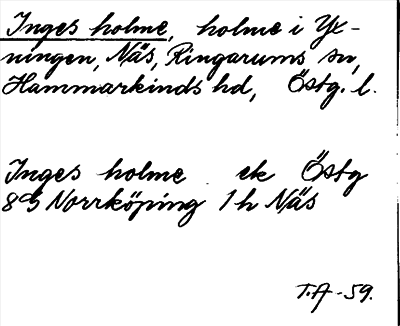 Inges holme, holme i Yx-
ningen, Näs, Ringarums sn,
Hammarkinds hd, Östg. l.
Inges holme ek Östg
8 G Norrköping 1 h Näs
T.A -59.